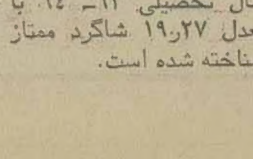 تحصیلی ۱۳ــ ۱٤ با
۱۹٫۲۷ شاگرد ممتاز
شناخته شده است.